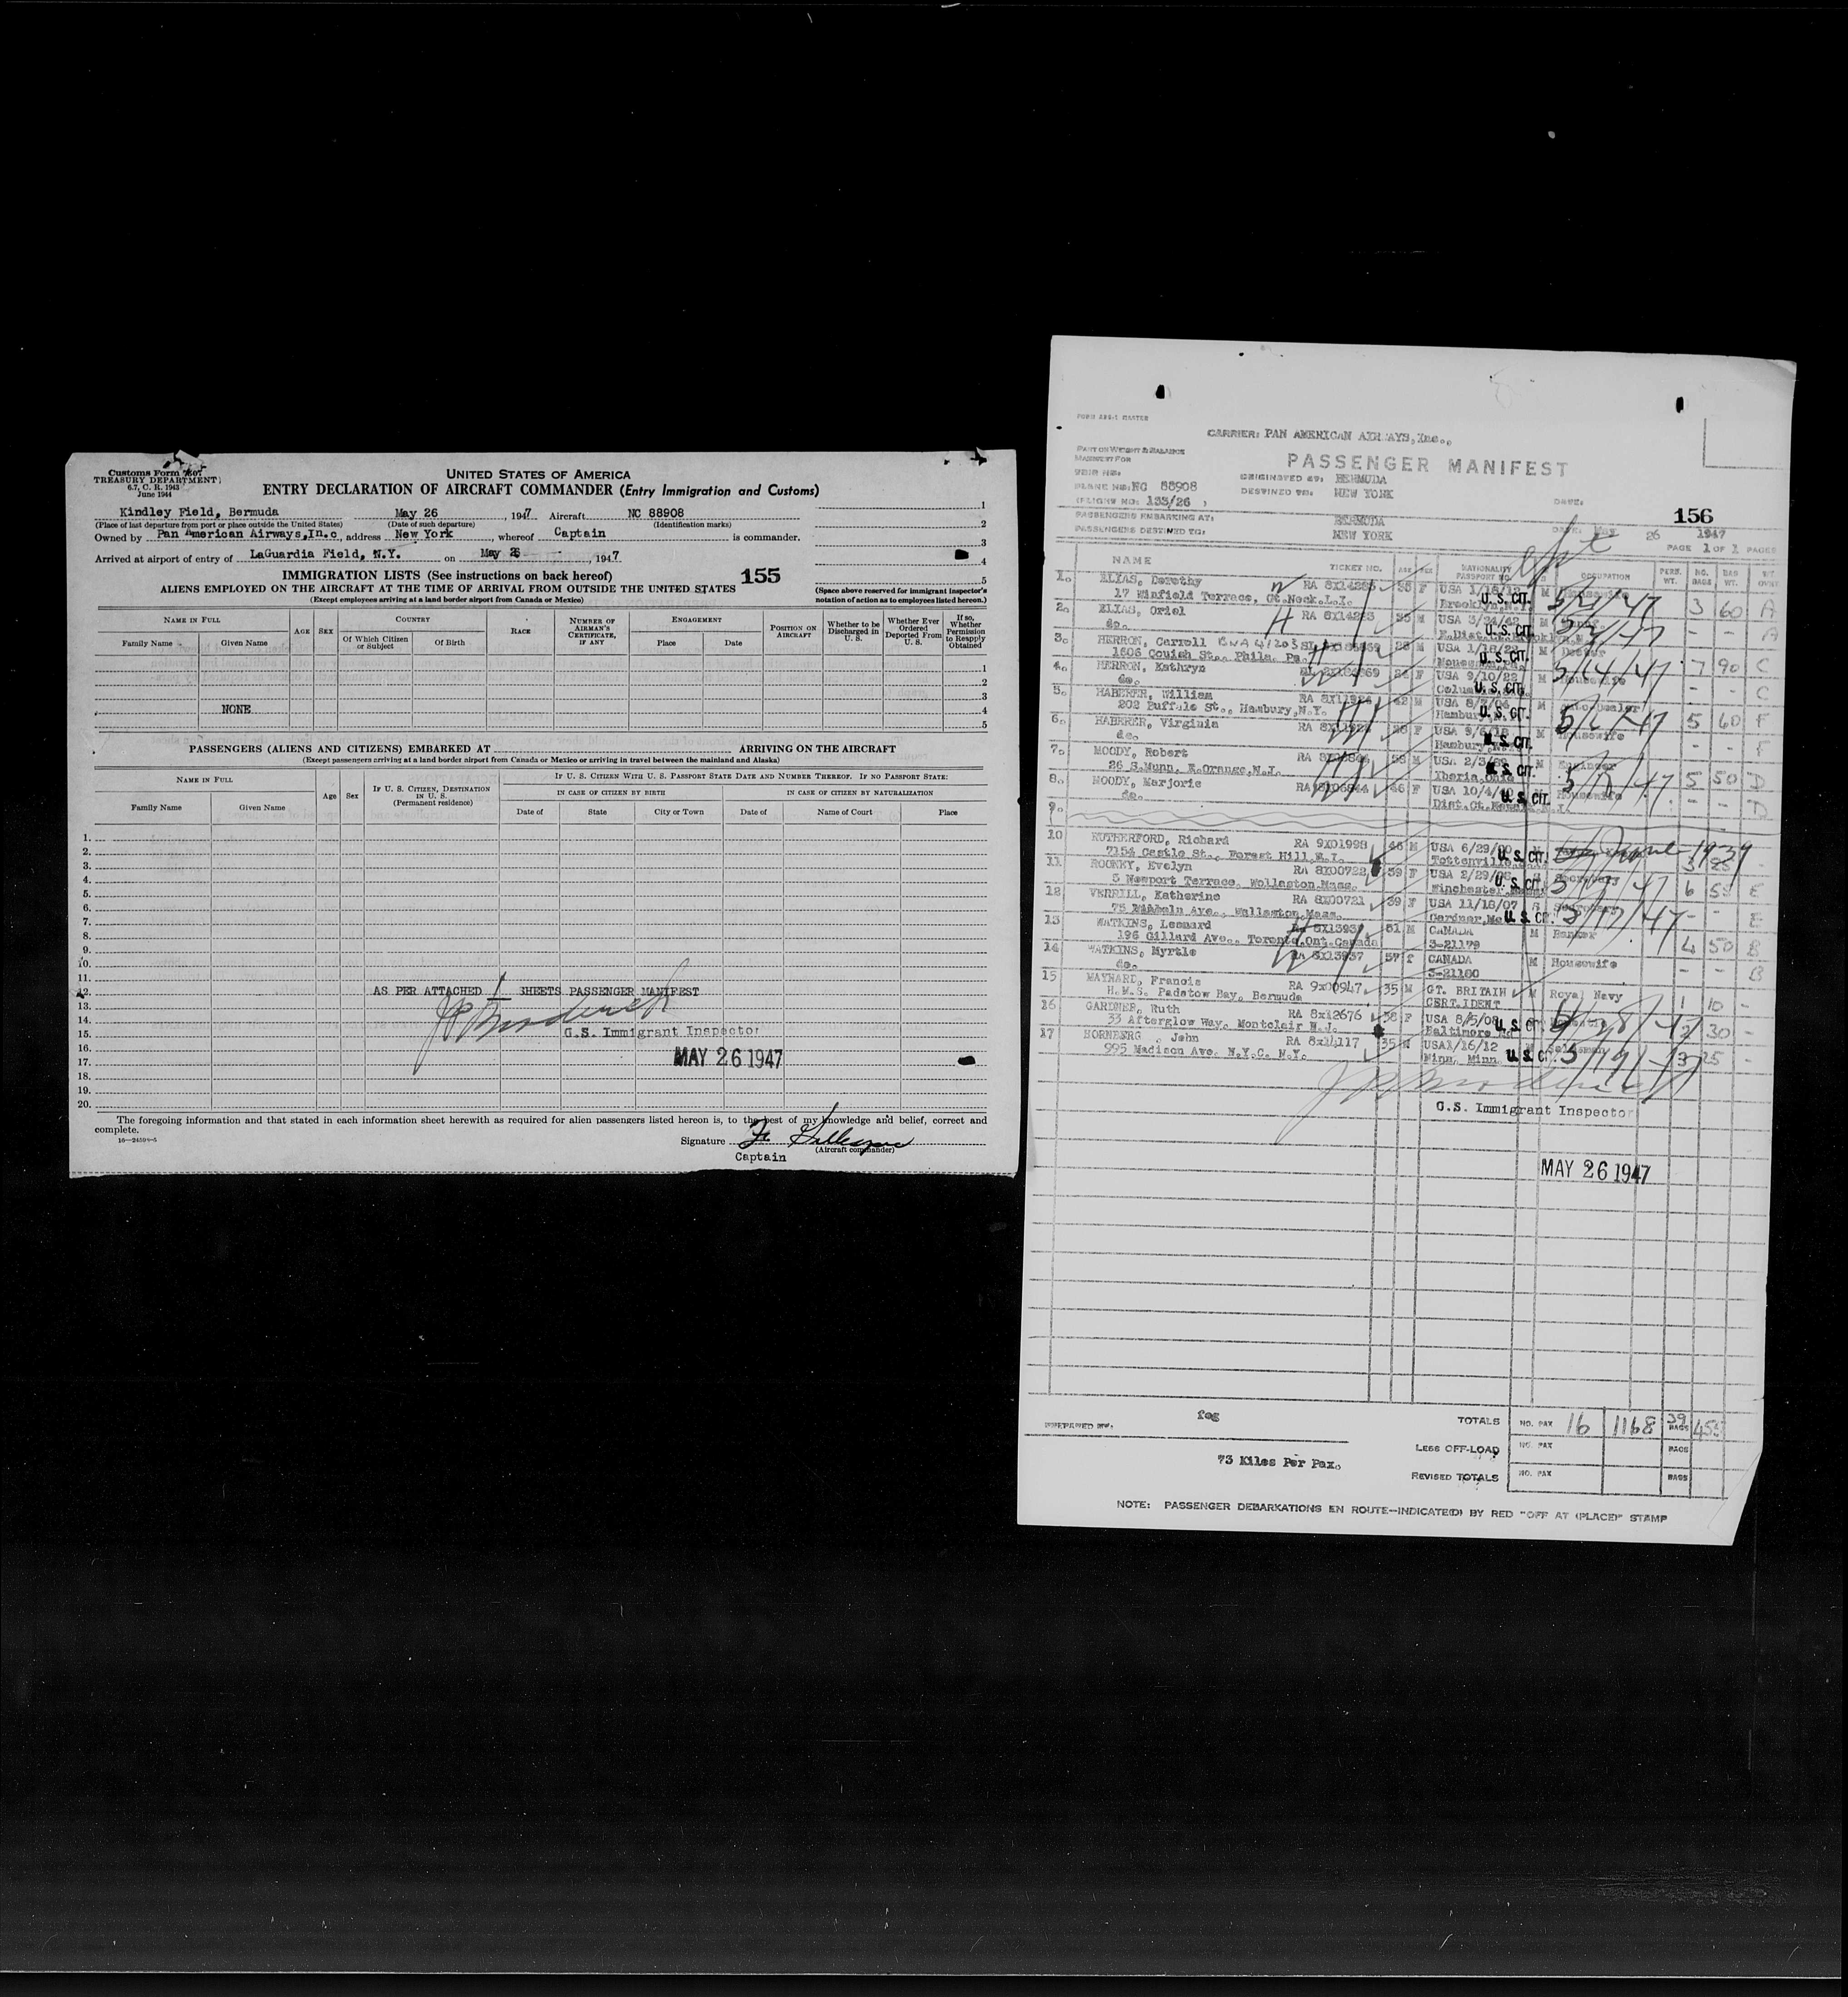 Customs Form 7507
TREASURY DEPARTMENT
6.7, C. R. 1943
June 1944
UNITED STATES OF AMERICA
ENTRY DECLARATION OF AIRCRAFT COMMANDER (Entry Immigration and Customs)
Kindley Field, Bermuda May 26, 1947 Aircraft NC 88908
(Place of last departure from port or place outside the United States) (Date of such departure) (Identification marks)
Owned by Pan American Airways,In.c, address New York, whereof Captain is commander.
Arrived at airport of entry of LaGuardia Field, N.Y. on May 26, 1947
1
2
3
4
5
IMMIGRATION LISTS (See instructions on back hereof) 155
ALIENS EMPLOYED ON THE AIRCRAFT AT THE TIME OF ARRIVAL FROM OUTSIDE THE UNITED STATES
(Except employees arriving at a land border airport from Canada or Mexico)
(Space above reserved for immigrant inspector's notation of action as to employees listed hereon.)
NAME IN FULL AGE SEX COUNTRY RACE NUMBER OF AIRMAN'S CERTIFICATE, IF ANY ENGAGEMENT POSITION ON AIRCRAFT Whether to be Discharged in U. S. Whether Ever Ordered Deported From U. S. If so, Whether Permission to Reapply Obtained
Family Name Given Name Of Which Citizen or Subject Of Birth Place Date
1
2
3
NONE 4
5
PASSENGERS (ALIENS AND CITIZENS) EMBARKED AT ARRIVING ON THE AIRCRAFT
(Except passengers arriving at a land border airport from Canada or Mexico or arriving in travel between the mainland and Alaska)
NAME IN FULL Age Sex IF U. S. CITIZEN, DESTINATION IN U. S. (Permanent residence) IF U. S. CITIZEN WITH U. S. PASSPORT STATE DATE AND NUMBER THEREOF. IF NO PASSPORT STATE:
IN CASE OF CITIZEN BY BIRTH IN CASE OF CITIZEN BY NATURALIZATION
Family Name Given Name Date of State City or Town Date of Name of Court Place
1.
2.
3.
4.
5.
6.
7.
8.
9.
10.
11.
12. AS PER ATTACHED 1 SHEETS PASSENGER MANIFEST
13.
14.
15. G.S. Immigrant Inspector
16.
17. MAY 26 1947
18.
19.
20.
The foregoing information and that stated in each information sheet herewith as required for alien passengers listed hereon is, to the best of my knowledge and belief, correct and
complete.
Signature
(Aircraft commander)
Captain
CARRIER: PAN AMERICAN AIRWAYS,Inc.,
PART ON WEIGHT & BALANCE
MANIFEST FOR
PASSENGER MANIFEST
PLANE NO: NC 88908 ORIGINATED AT: BERMUDA
(FLIGHT NO: 133/26 ) DESTINED TO: NEW YORK DATE:
156
PASSENGERS EMBARKING AT: BERMUDA DATE: May 26 1947
PASSENGERS DESTINED TO: NEW YORK PAGE 1 OF 1 PAGES
NAME TICKET NO. AGE SEX NATIONALITY PASSPORT NO. OCCUPATION PERS. WT. NO. BAGS BAG WT.
1. ELIAS, Dorothy F USA U.S. CIT. M Housewife 3 60 A
17 Winfield Terrace, Gt.Neck.L.I. Brooklyn,N.Y.
2. ELIAS, Oriel M USA 3/24/42 U.S. CIT. - - A
do.
3. HERRON, Carroll M USA U.S. CIT. M Doctor 7 90 C
Phila. Pa.
4. HERRON, Kathryn F USA 9/10/22 U.S. CIT. M Housewife - - C
do.
5. HABERER, William 42 M USA U.S. CIT. M Auto-Dealer 5 60 F
202 Buffalo St., Hambury,N.Y.
6. HABERER, Virginia F USA 9/6/18 U.S. CIT. M Housewife - - F
do. Hambury
7. MOODY, Robert M USA U.S. CIT. M Engineer 5 50 D
26 S.Munn, E.Orange,N.J. Iberia,Ohio
8. MOODY, Marjorie 46 F USA U.S. CIT. Housewife - - D
do.
9.
10 RUTHERFORD, Richard RA 9X01998 46 M USA 6/29/00 U.S. CIT. June 1939 3 25 -
7154 Castle St., Forest Hill,N.Y. Tottenville
11 ROONEY, Evelyn RA 8X00722 39 F USA 2/29/08 U.S. CIT. S Secretary 6 55 E
5 Newport Terrace, Wollaston,Mass. Winchester
12 VERRILL, Katherine RA 8X00721 39 F USA 11/18/07 U.S. CIT. S Secretary - - E
Wollaston,Mass. Gardner
13 WATKINS, Leonard 51 M CANADA M Banker 4 50 B
196 Gillard Ave., Toronto,Ont.Canada 3-21179
14 WATKINS, Myrtle RA 8X13937 57 f CANADA M Housewife - - B
do. 3-21180
15 MAYNARD, Francis RA 9x00947 35 M GT. BRITAIN M Royal Navy 1 10 -
H.M.S. Padstow Bay, Bermuda CERT.IDENT
16 GARDNER, Ruth RA 8x12676 38 F USA 8/5/08 U.S. CIT. 2 30 -
33 Afterglow Way, Montclair N.J. Baltimore Md
17 HORNBERG , John RA 8x14117 35 M USA1/16/12 U.S. CIT. Salesman 3 25 -
995 Madison Ave. N.Y.C. N.Y. Minn. Minn
G.S. Immigrant Inspector
MAY 26 1947
PREPARED BY: fog TOTALS NO. PAX 16 1168 39 BAGS 455
LESS OFF-LOAD NO. PAX BAGS
73 Kilos Per Pax. REVISED TOTALS NO. PAX BAGS
NOTE: PASSENGER DEBARKATIONS EN ROUTE—INDICATE(D) BY RED "OFF AT (PLACE)" STAMP